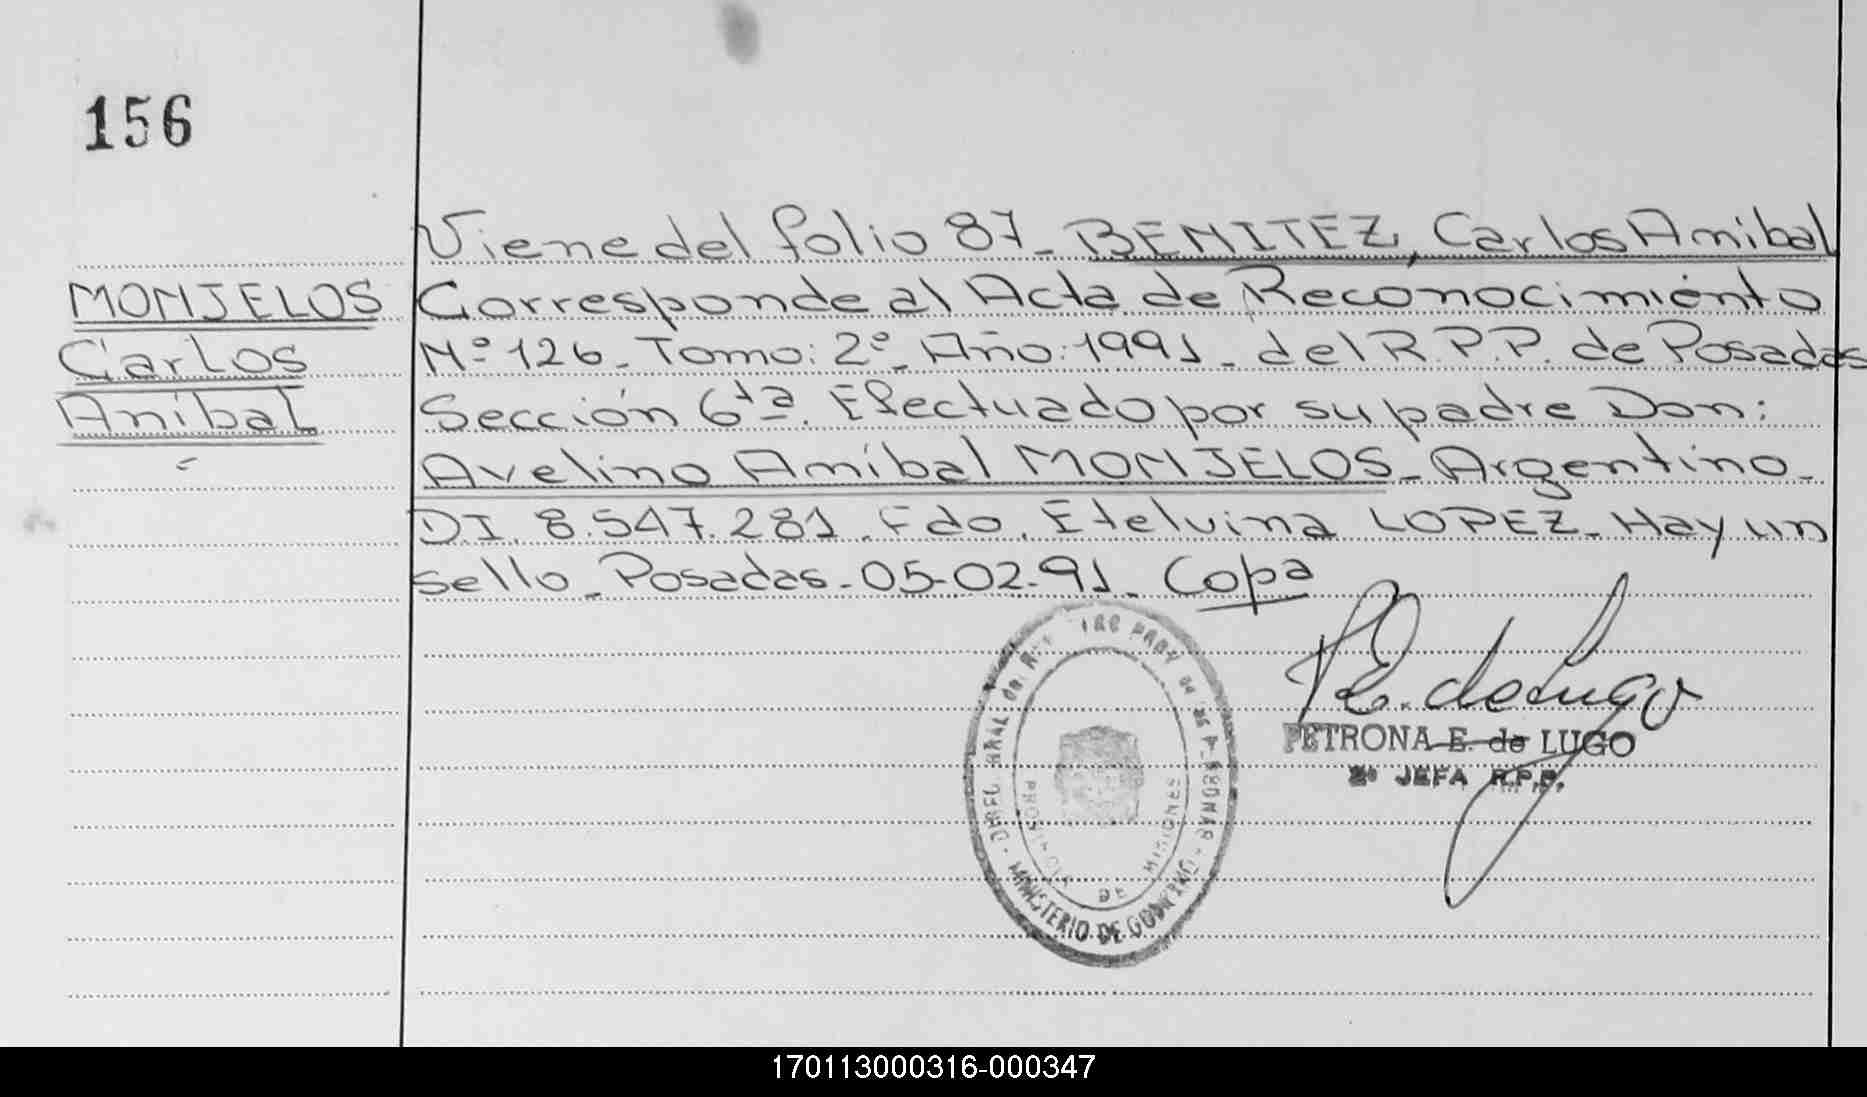 156
MONJELOS
Carlos
Aníbal
Viene del folio 87_ BENITEZ, Carlos Anibal
Corresponde al Acta de Reconocimiento
Nº 126_ Tomo: 2º_ Año: 1991_ del R.P.P. de Posadas
Sección 6ta. Efectuado por su padre Don:
Avelino Aníbal MONJELOS_ Argentino_
D.I. 8.547.281. Fdo. Etelvina LOPEZ_ Hay un
sello_ Posadas_05-02-91_ Copa
P.E. de Lugo
PETRONA E. de LUGO
2º JEFA R.P.P.
MINISTERIO DE GOBIERNO
PROVINCIA DE MISIONES
170113000316-000347